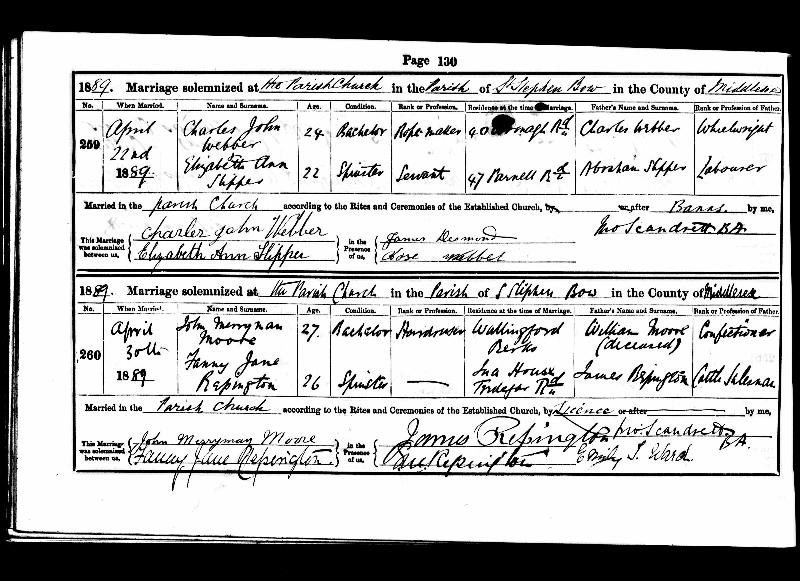 Page 130
1889. Marriage solemnized at the Parish Church in the Parish of St Stephen Bow in the County of Middlesex
No. When Married. Name and Surname. Age. Condition. Rank or Profession. Residence at the time of Marriage. Father's Name and Surname. Rank or Profession of Father.
259 April 22nd 1889 Charles John Webber 24 Bachelor Rope maker 40 Rd Charles Webber Wheelwright
Elizabeth Ann Slipper 22 Spinster Servant 47 Parnell Rd Abraham Slipper Labourer
Married in the Parish Church according to the Rites and Ceremonies of the Established Church, by or after Banns by me,
This Marriage was solemnized between us, Charles John Webber in the Presence of us, James Desmond Jno Scandrett BA.
Elizabeth Ann Slipper Rose Webber
1889. Marriage solemnized at the Parish Church in the Parish of St Stephen Bow in the County of Middlesex
No. When Married. Name and Surname. Age. Condition. Rank or Profession. Residence at the time of Marriage. Father's Name and Surname. Rank or Profession of Father.
260 April 30th 1889 John Merryman Moore 27. Bachelor Wallingford Berks William Moore (deceased) Confectioner
Fanny Jane Repington 26 Spinster — House Tredegar Rd James Repington Cattle Salesman
Married in the Parish Church according to the Rites and Ceremonies of the Established Church, by Licence or after by me,
This Marriage was solemnized between us, John Merryman Moore in the Presence of us, James Repington Jno Scandrett BA.
Fanny Jane Repington. Repington Emily J. Ward